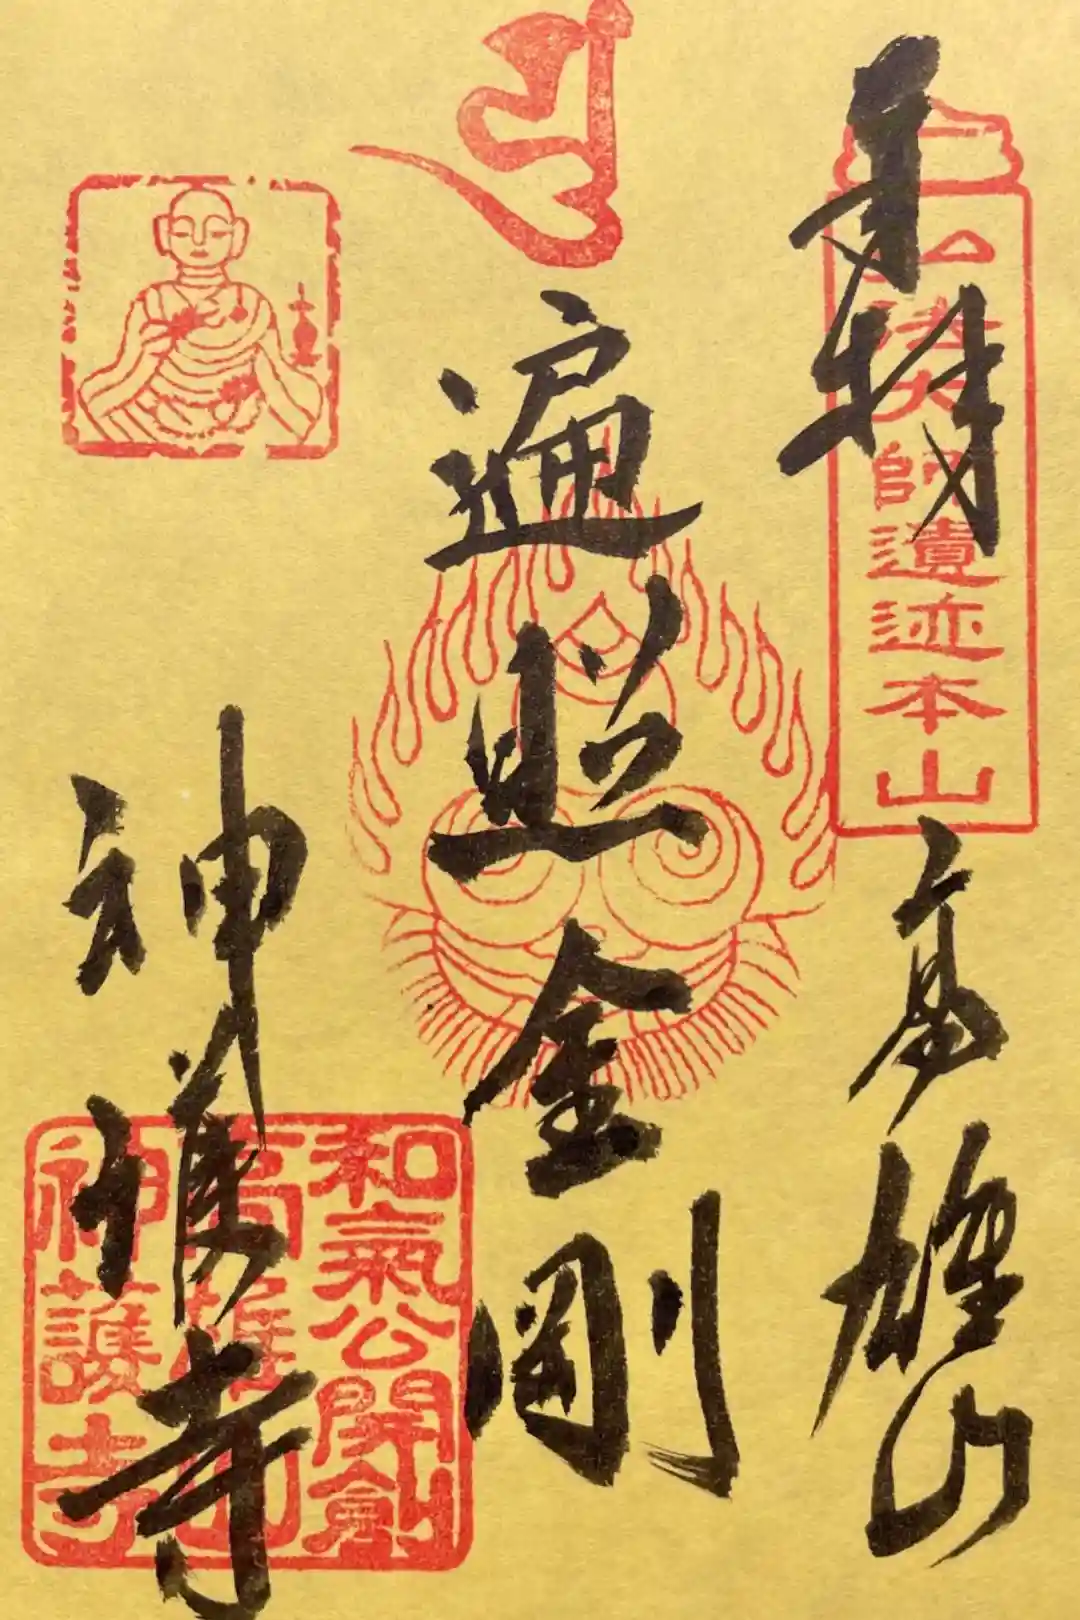 奉拝
弘法大師遺迹本山
高雄山
遍照金剛
神護寺
和氣公開創
高雄山
神護寺